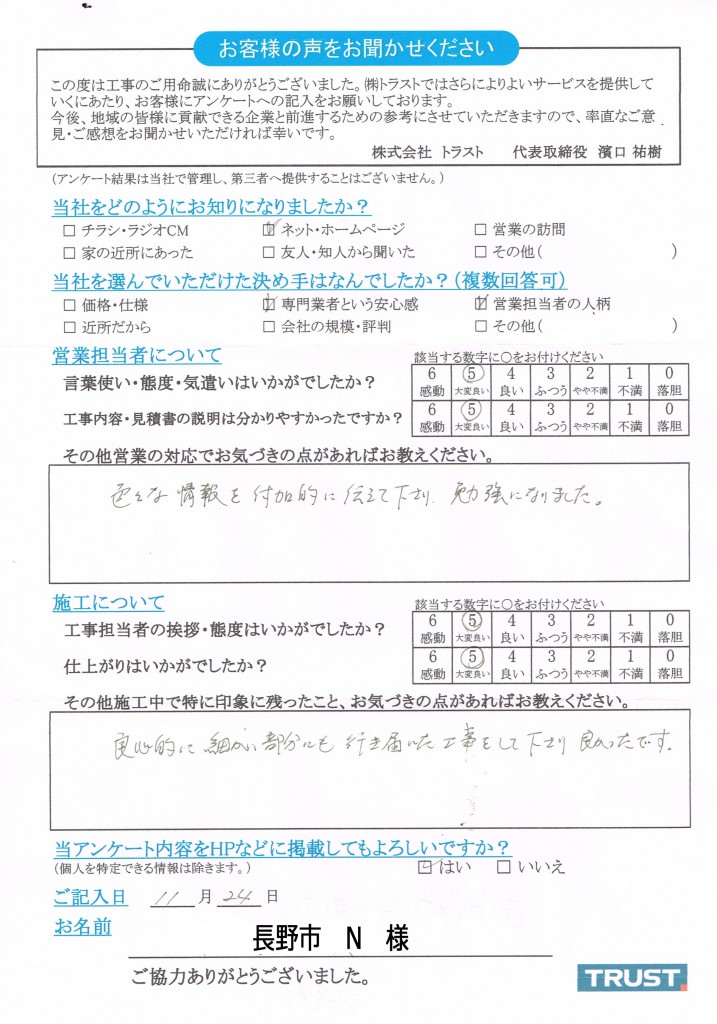 お客様の声をお聞かせください
この度は工事のご用命誠にありがとうございました。㈱トラストではさらによりよいサービスを提供して
いくにあたり、お客様にアンケートへの記入をお願いしております。
今後、地域の皆様に貢献できる企業と前進するための参考にさせていただきますので、率直なご意
見・ご感想をお聞かせいただければ幸いです。
株式会社 トラスト 代表取締役 濱口 祐樹
(アンケート結果は当社で管理し、第三者へ提供することはございません。)
当社をどのようにお知りになりましたか?
□ チラシ・ラジオCM ☑ ネット・ホームページ □ 営業の訪問
□ 家の近所にあった □ 友人・知人から聞いた □ その他( )
当社を選んでいただけた決め手はなんでしたか?(複数回答可)
□ 価格・仕様 ☑ 専門業者という安心感 ☑ 営業担当者の人柄
□ 近所だから □ 会社の規模・評判 □ その他( )
営業担当者について 該当する数字に○をお付けください
言葉使い・態度・気遣いはいかがでしたか? 6 ⑤ 4 3 2 1 0
感動 大変良い 良い ふつう やや不満 不満 落胆
工事内容・見積書の説明は分かりやすかったですか? 6 ⑤ 4 3 2 1 0
感動 大変良い 良い ふつう やや不満 不満 落胆
その他営業の対応でお気づきの点があればお教えください。
色々な情報を付加的に伝えて下さり、勉強になりました。
施工について 該当する数字に○をお付けください
工事担当者の挨拶・態度はいかがでしたか? 6 ⑤ 4 3 2 1 0
感動 大変良い 良い ふつう やや不満 不満 落胆
仕上がりはいかがでしたか? 6 ⑤ 4 3 2 1 0
感動 大変良い 良い ふつう やや不満 不満 落胆
その他施工中で特に印象に残ったこと、お気づきの点があればお教えください。
良心的に細かい部分にも行き届いた工事をして下さり良かったです。
当アンケート内容をHPなどに掲載してもよろしいですか?
(個人を特定できる情報は除きます。) ☑ はい □ いいえ
ご記入日 11 月 24 日
お名前 長野市 N 様
ご協力ありがとうございました。
TRUST